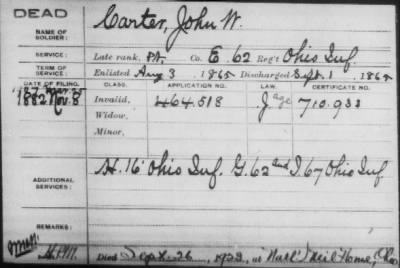 DEAD
NAME OF SOLDIER: Carter, John W.
SERVICE: Late rank, Pt. Co. E. 62 Reg't Ohio Inf.
TERM OF SERVICE: Enlisted Aug 3, 1865 Discharged Sept. 1, 1865
DATE OF FILING. CLASS. APPLICATION NO. LAW. CERTIFICATE NO.
1882 Nov. 8 Invalid, 464.518 J. age 710.933
Widow,
Minor,
ADDITIONAL SERVICES: H. 16" Ohio Inf. G. 62 and I. 67 Ohio Inf
REMARKS:
Died Sept. 26, 1922, at Nat'l Mil Home,